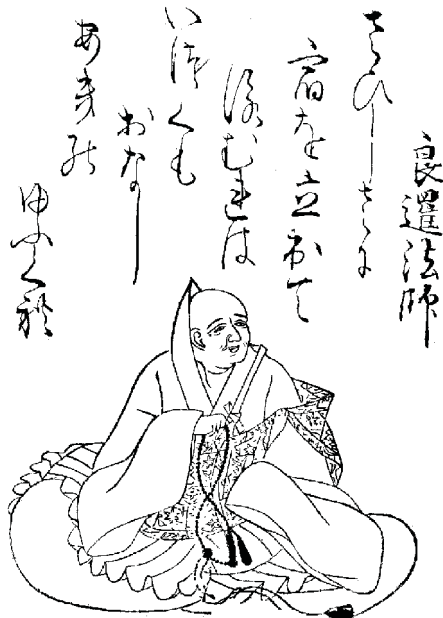 良暹法師
さひしさに
宿を立出て
詠むれは
いつくも
おなし
あきの
ゆふくれ